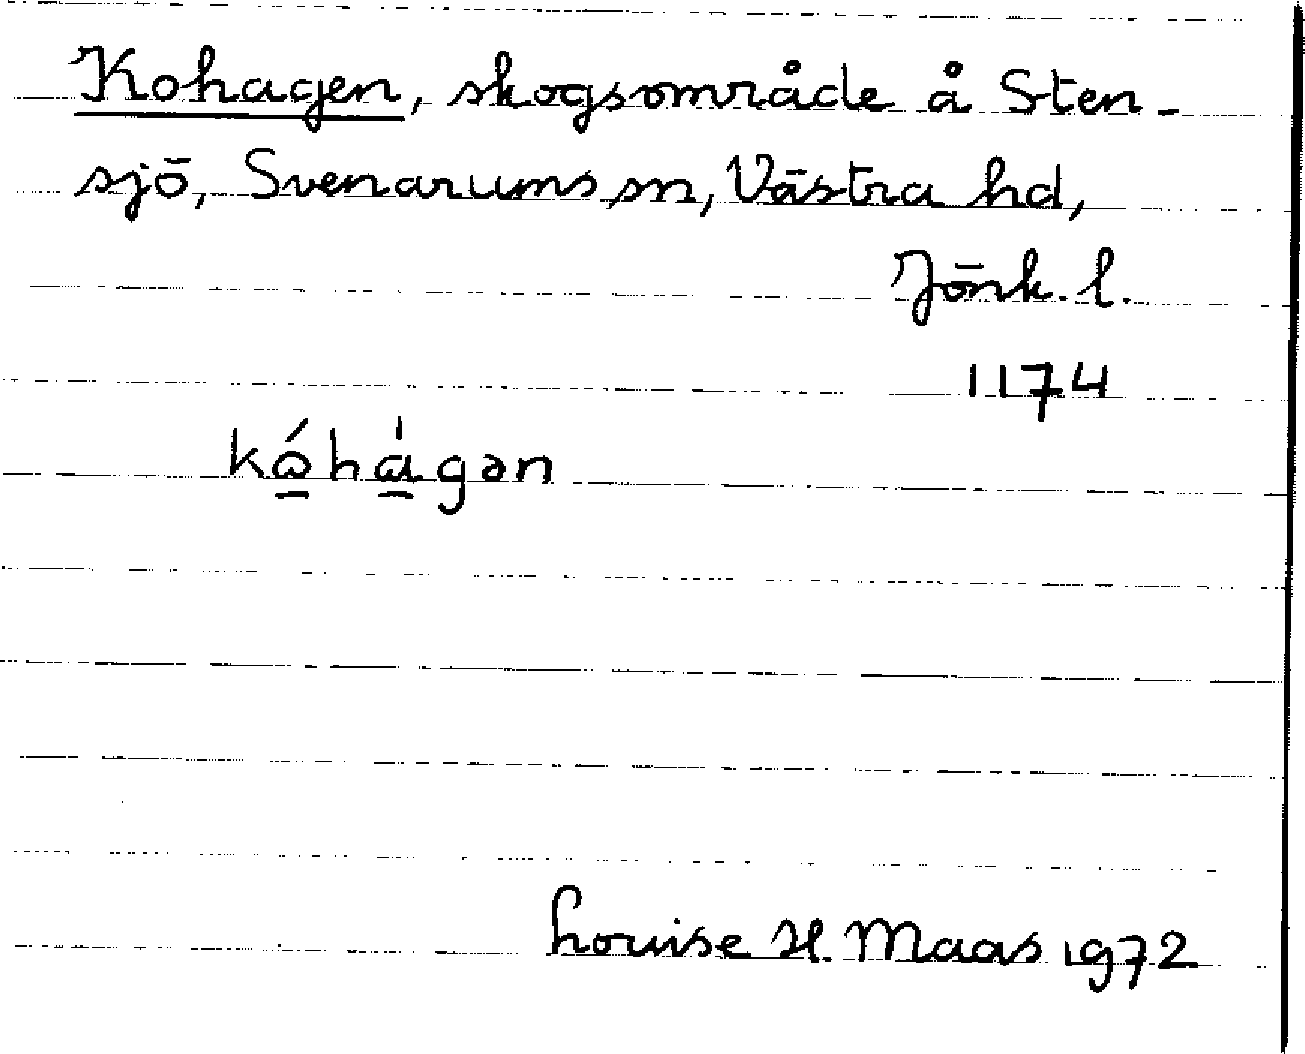 Kohagen, skogsområde å Sten-
sjö, Svenarums sn, Västra hd,
Jönk. l.
1174
kó̠hà̠gən
Louise H. Maas 1972